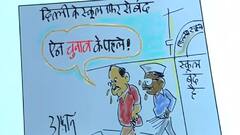 दिल्ली के स्कूल फिर से बंद
ऐन चुनाव के पहले!
स्कूल
बंद
है